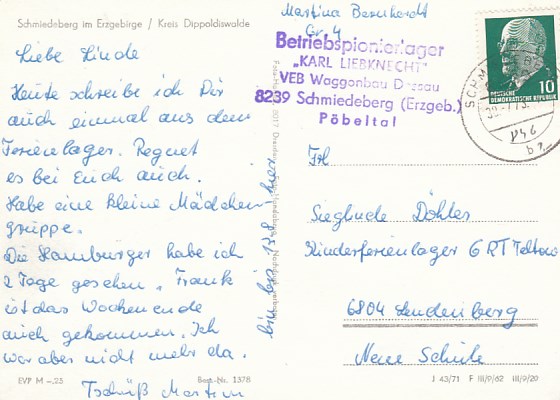 Schmiedeberg im Erzgebirge / Kreis Dippoldiswalde
Liebe Linde
Heute schreibe ich Dir
auch einmal aus dem
Ferienlager. Regnet
es bei Euch auch.
Habe eine kleine Mädchen-
gruppe.
Die Hamburger habe ich
2 Tage gesehen. Frank
ist das Wochenende
auch gekommen. Ich
war aber nicht mehr da.
Tschüß Martina
bin bis 13.8 hier
EVP M -,25
Best.-Nr. 1378
Martina Bernhardt
Gr. 4
Betriebspionierlager
„KARL LIEBKNECHT"
VEB Waggonbau Dessau
8239 Schmiedeberg (Erzgeb.)
Pöbeltal
DEUTSCHE
DEMOKRATISCHE REPUBLIK
10
Frl
Sieglinde Döhler
Kinderferienlager GRT Teltow
6804 Leutenberg
Neue Schule
J 43/71 F III/9/62 III/9/20